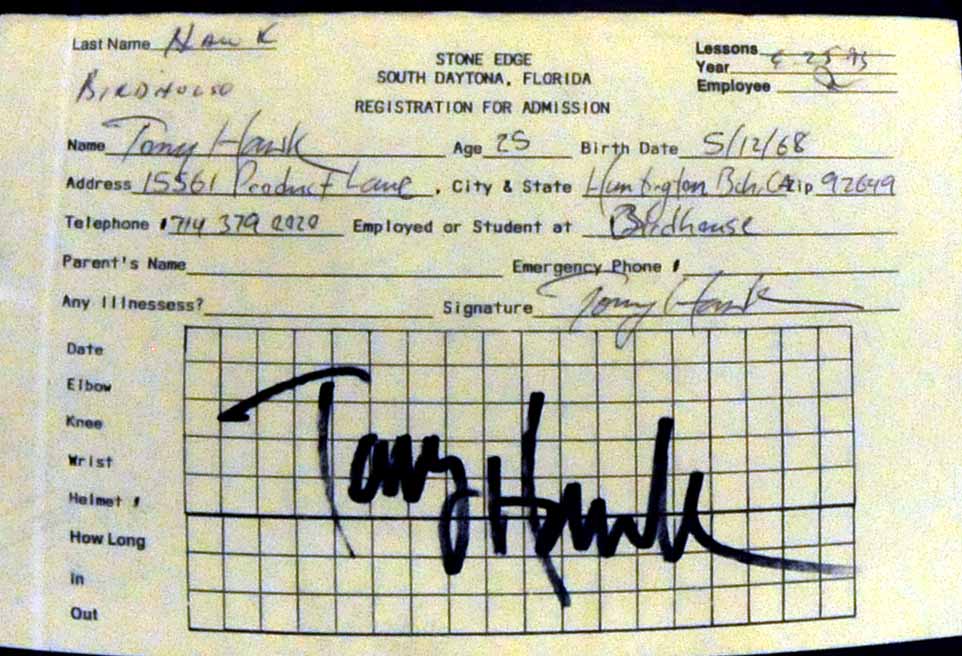 Last Name Hawk
Birdhouse
STONE EDGE
SOUTH DAYTONA, FLORIDA
REGISTRATION FOR ADMISSION
Lessons
Year
Employee
Name Tony Hawk Age 25 Birth Date 5/12/68
Address 15561 Product Lane, City & State Huntington Bch, CA Zip 92649
Telephone # 714 379 0020 Employed or Student at Birdhouse
Parent's Name Emergency Phone #
Any Illnessess? Signature Tony Hawk
Date
Elbow
Knee
Wrist
Helmet #
How Long
In
Out
Tony Hawk